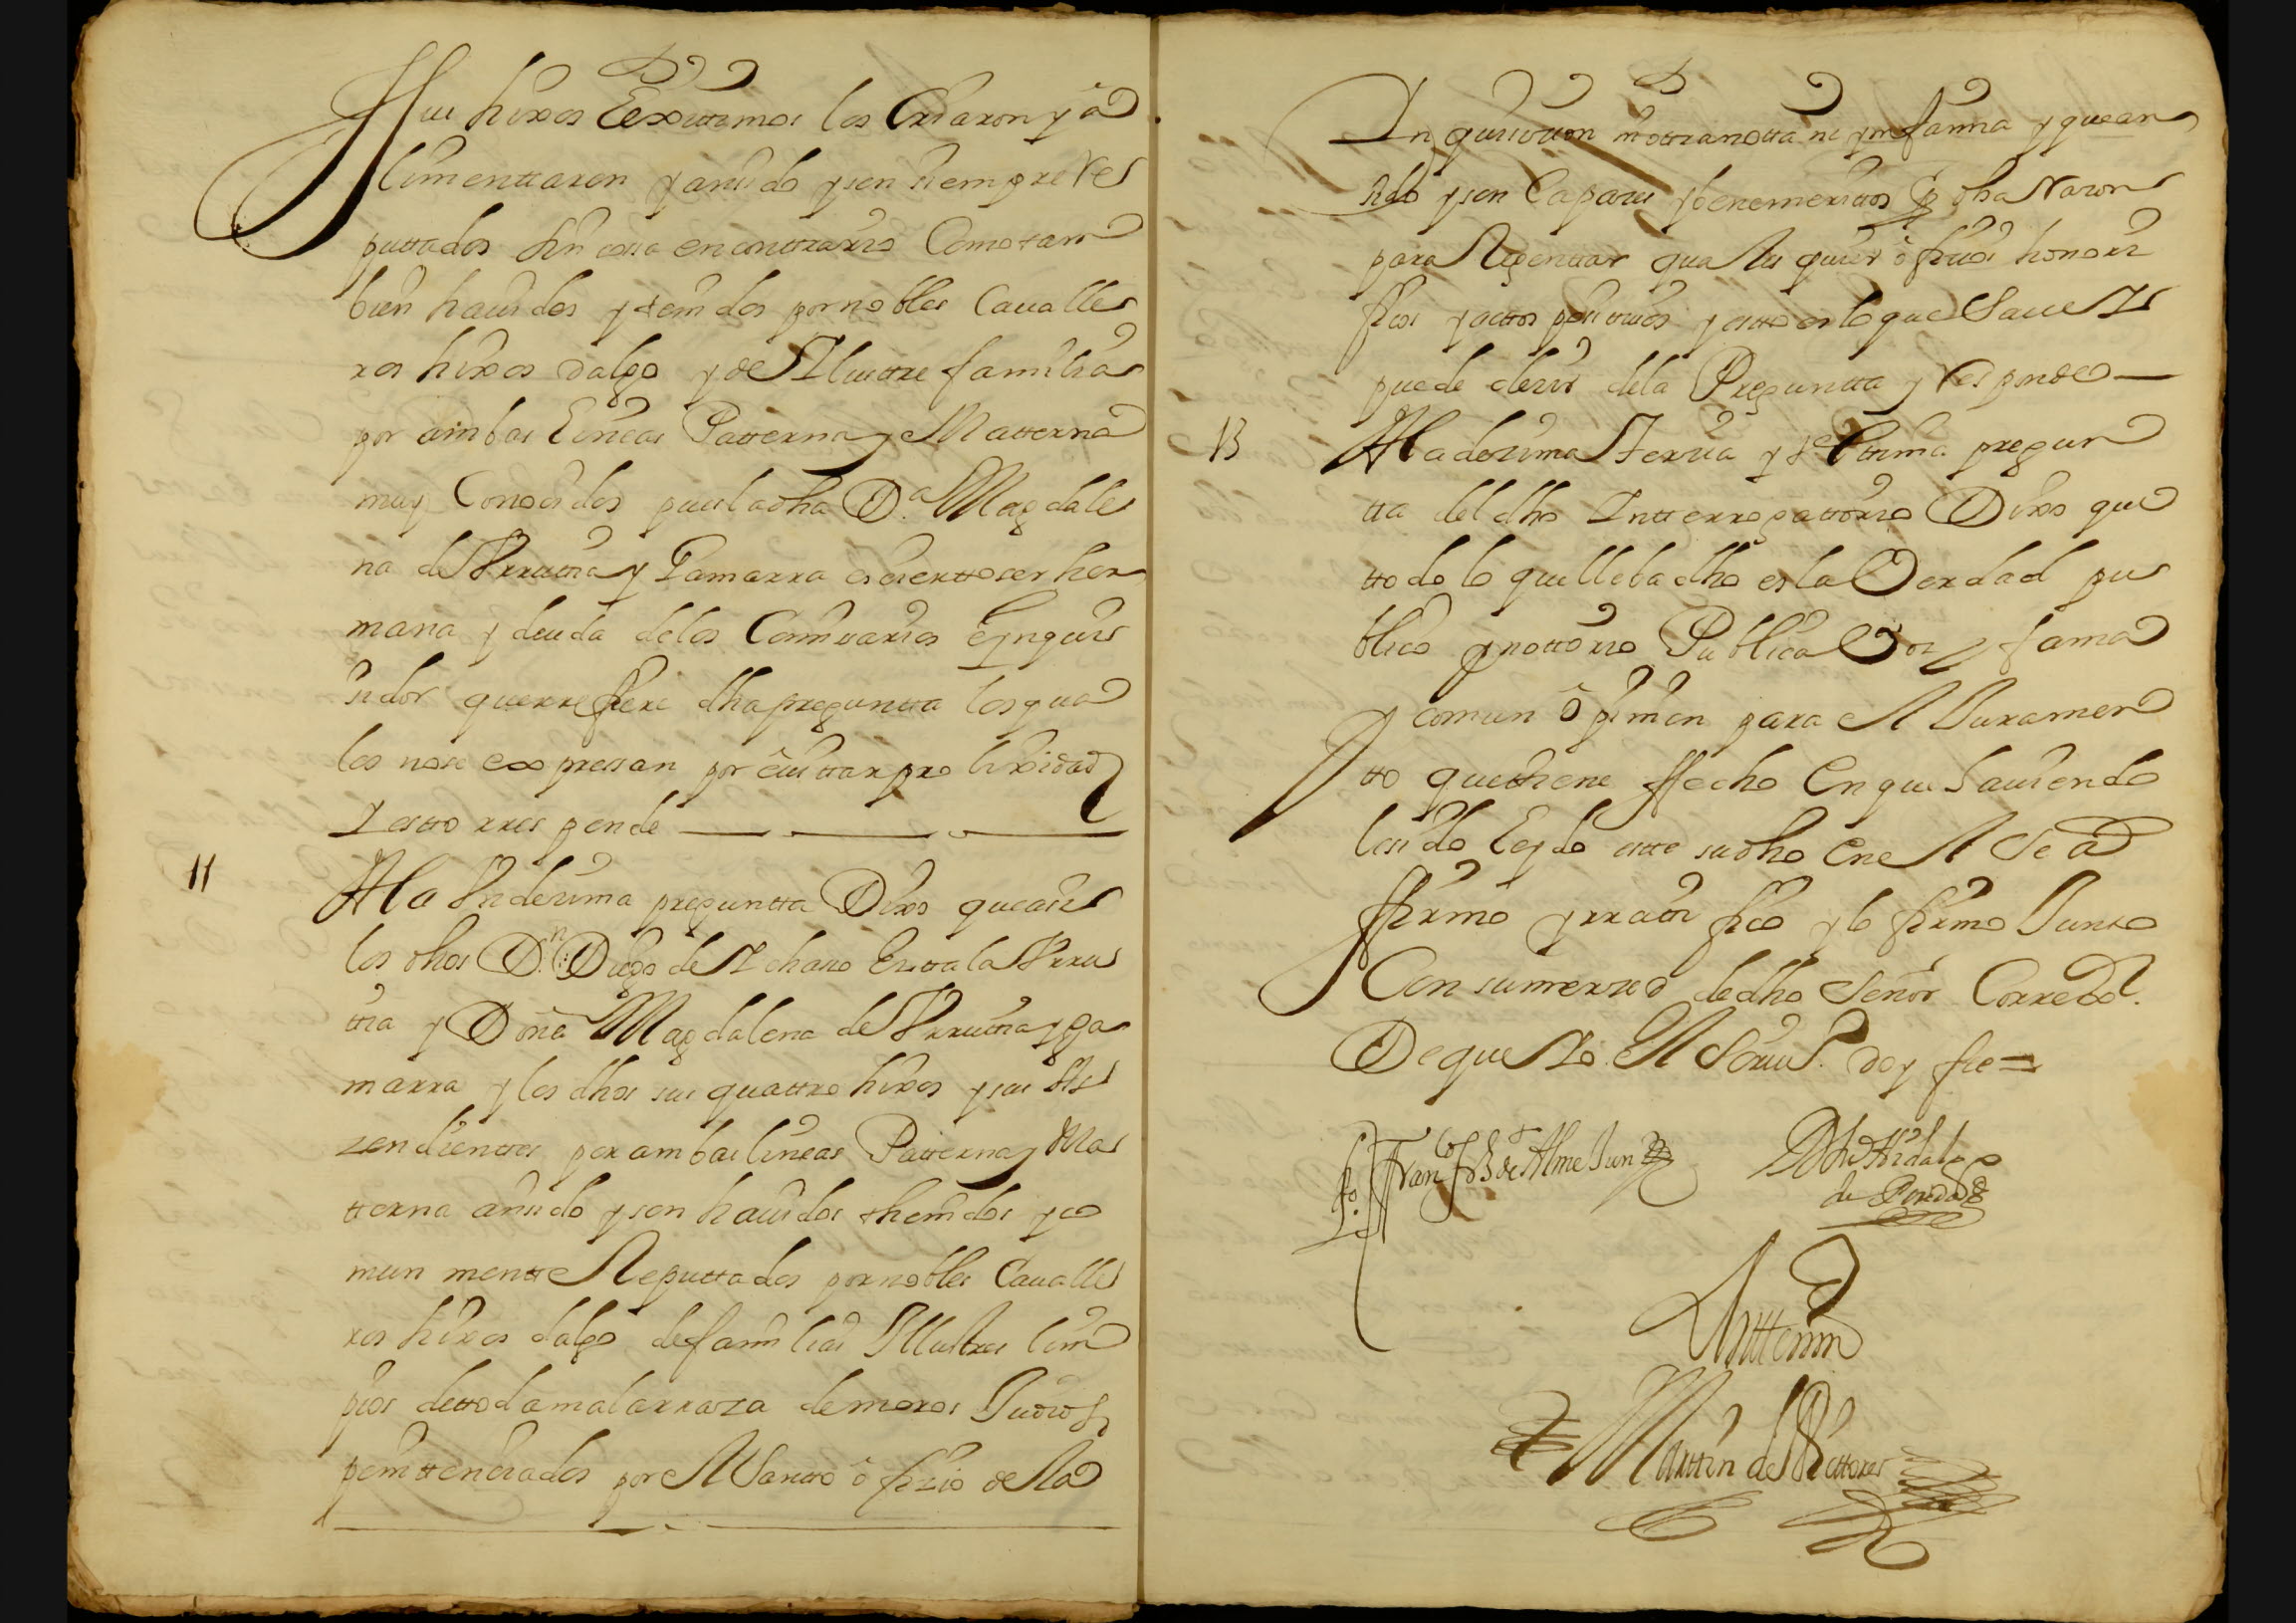 Sus hixos lexittimos los Criaron y a
limenttaron y an sido y son siempre rre
puttados sin cosa en conttrario Como tam
bien hauidos y tenidos por nobles Caualle
ros hixos dalgo y de Illusttre familia
por ambas lineas Patterna y Matterna
muy Conocidos pues la dha D.ª Magdale
na de Vrruttia y Gamarra es cierto ser her
mana y deuda de los Comisarios e ynquis
sidor que rrefiere dha pregunta los qua
les no se expressan por euittar prolixidad
Y estto rresponde
11
A la Vndezima preguntta Dixo que a
los dhos D.n Diego de Echaso Ezitala Vrru
ttia y Doña Magdalena de Vrruttia y ga
marra y los dhos sus quattro hixos y sus des
zendientes por ambas lineas Patterna y Ma
tterna an sido y son hauidos thenidos y co
mun mentte Reputtados por nobles Caualle
ros hixos dalgo de familias Illustres lim
pios de ttoda mala rraza de moros Judios
penittenciados por el Santto ofizio de la
Ynquisicion ni ottra notta ni ynfamia y que an
sido y son Capaces y benemerittos En dha Razon
para Rexenttar qualesquier oficios honori
ficos y acttos posittiuos y estto es lo que Saue Y
puede dezir de la Preguntta y Responde
13
A la dezima Terzia y Vlttima pregun
tta del dho Intterrogattorio Dixo que
ttodo lo que lleba dho es la Verdad pu
blico y nottorio Publica Voz y fama
y comun opinion para el Juramen
tto que tiene ffecho En que hauiendo
lesido leydo estte su dho En el Se a
ffirmo y rrattifico y lo firmo Junto
Con su merced de dho Señor Corredor.
De que Yo El Scriu.º doy fee =
Fran.co de Alme
Hidalgo
de Pereda
Antte mi
Marttin de Rettores